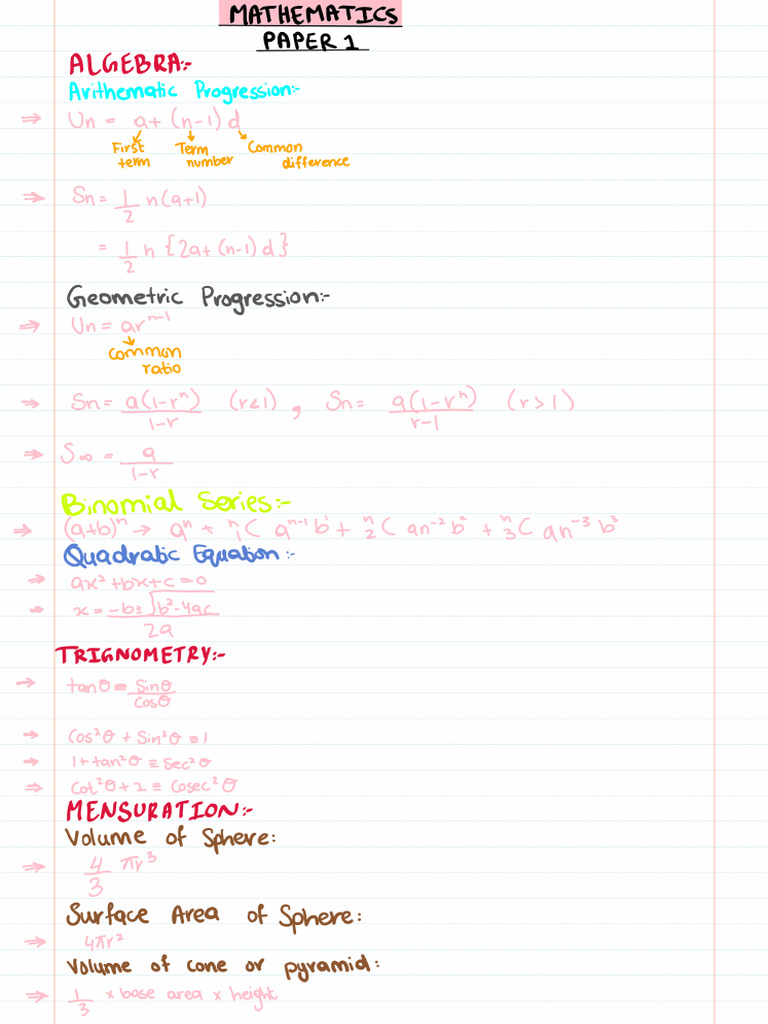 MATHEMATICS
PAPER 1
ALGEBRA:-
Arithematic Progression:-
⇒ Un = a+ (n-1) d
First term Term number Common difference
⇒ Sn = 1/2 n(a+1)
= 1/2 n {2a+(n-1)d}
Geometric Progression:-
⇒ Un = arⁿ⁻¹
Common ratio
⇒ Sn = a(1-rⁿ)/1-r (r<1) , Sn = a(1-rⁿ)/r-1 (r>1)
⇒ S∞ = a/1-r
Binomial Series:-
⇒ (a+b)ⁿ → aⁿ + ⁿ₁C aⁿ⁻¹b¹ + ⁿ₂C an⁻²b² + ⁿ₃C an⁻³b³
Quadratic Equation:-
⇒ ax²+bx+c=0
⇒ x = -b±√b²-4ac/2a
TRIGNOMETRY:-
⇒ tanθ ≡ Sinθ/Cosθ
⇒ Cos²θ + Sin²θ ≡ 1
⇒ 1+tan²θ ≡ Sec²θ
⇒ Cot²θ+1 ≡ Cosec²θ
MENSURATION:-
Volume of Sphere:
⇒ 4/3 πr³
Surface Area of Sphere:
⇒ 4πr²
Volume of cone or pyramid:
⇒ 1/3 × base area × height